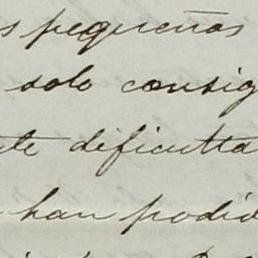 s pequeños
solo consig
te dificulta
han podid